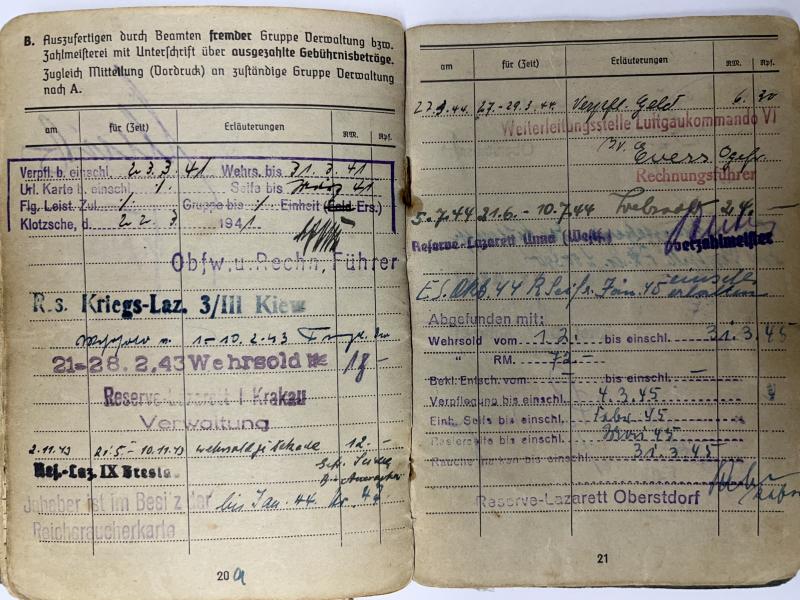 B. Auszufertigen durch Beamten fremder Gruppe Verwaltung bzw.
Zahlmeisterei mit Unterschrift über ausgezahlte Gebührnisbeträge.
Zugleich Mitteilung (Vordruck) an zuständige Gruppe Verwaltung
nach A.
am für (Zeit) Erläuterungen RM. Rpf.
Verpfl. b. einschl. 23.3.41 Wehrs. bis 31.3.41
Url. Karte b. einschl. Seife bis 41
Flg. Leist. Zul. Gruppe bis Einheit (Geld Ers.)
Klotzsche, d. 22 3 1941
Obfw. u. Rechn. Führer
R.s. Kriegs-Laz. 3/III Kiew
1-10.2.43
21-28.2.43 Wehrsold 18-
Reserve-Lazarett I Krakau
Verwaltung
2.11.43 21.5-10.11.43 12.-
Res.-Laz. IX
Inhaber ist im Besitz der bis Jan. 44
Reichsraucherkarte
20a
am für (Zeit) Erläuterungen RM. Rpf.
27.3.44 27.-29.3.44 Verpfl. Geld 6. 30
Weiterleitungsstelle Luftgaukommando VI
Evers Ogefr
Rechnungsführer
5.7.44 21.6.-10.7.44 2.4.-
Reserve-Lazarett Unna (Westf.)
Oberzahlmeister
44 45
Abgefunden mit:
Wehrsold vom 1.2. bis einschl. 31.3.45
" RM. 72.-
Bekl. Entsch. vom bis einschl.
Verpflegung bis einschl. 4.3.45
Einh. Seife bis einschl. Febr 45
Rasierseife bis einschl. 45
Raucherkarten bis einschl. 31.3.45
Reserve-Lazarett Oberstdorf
21